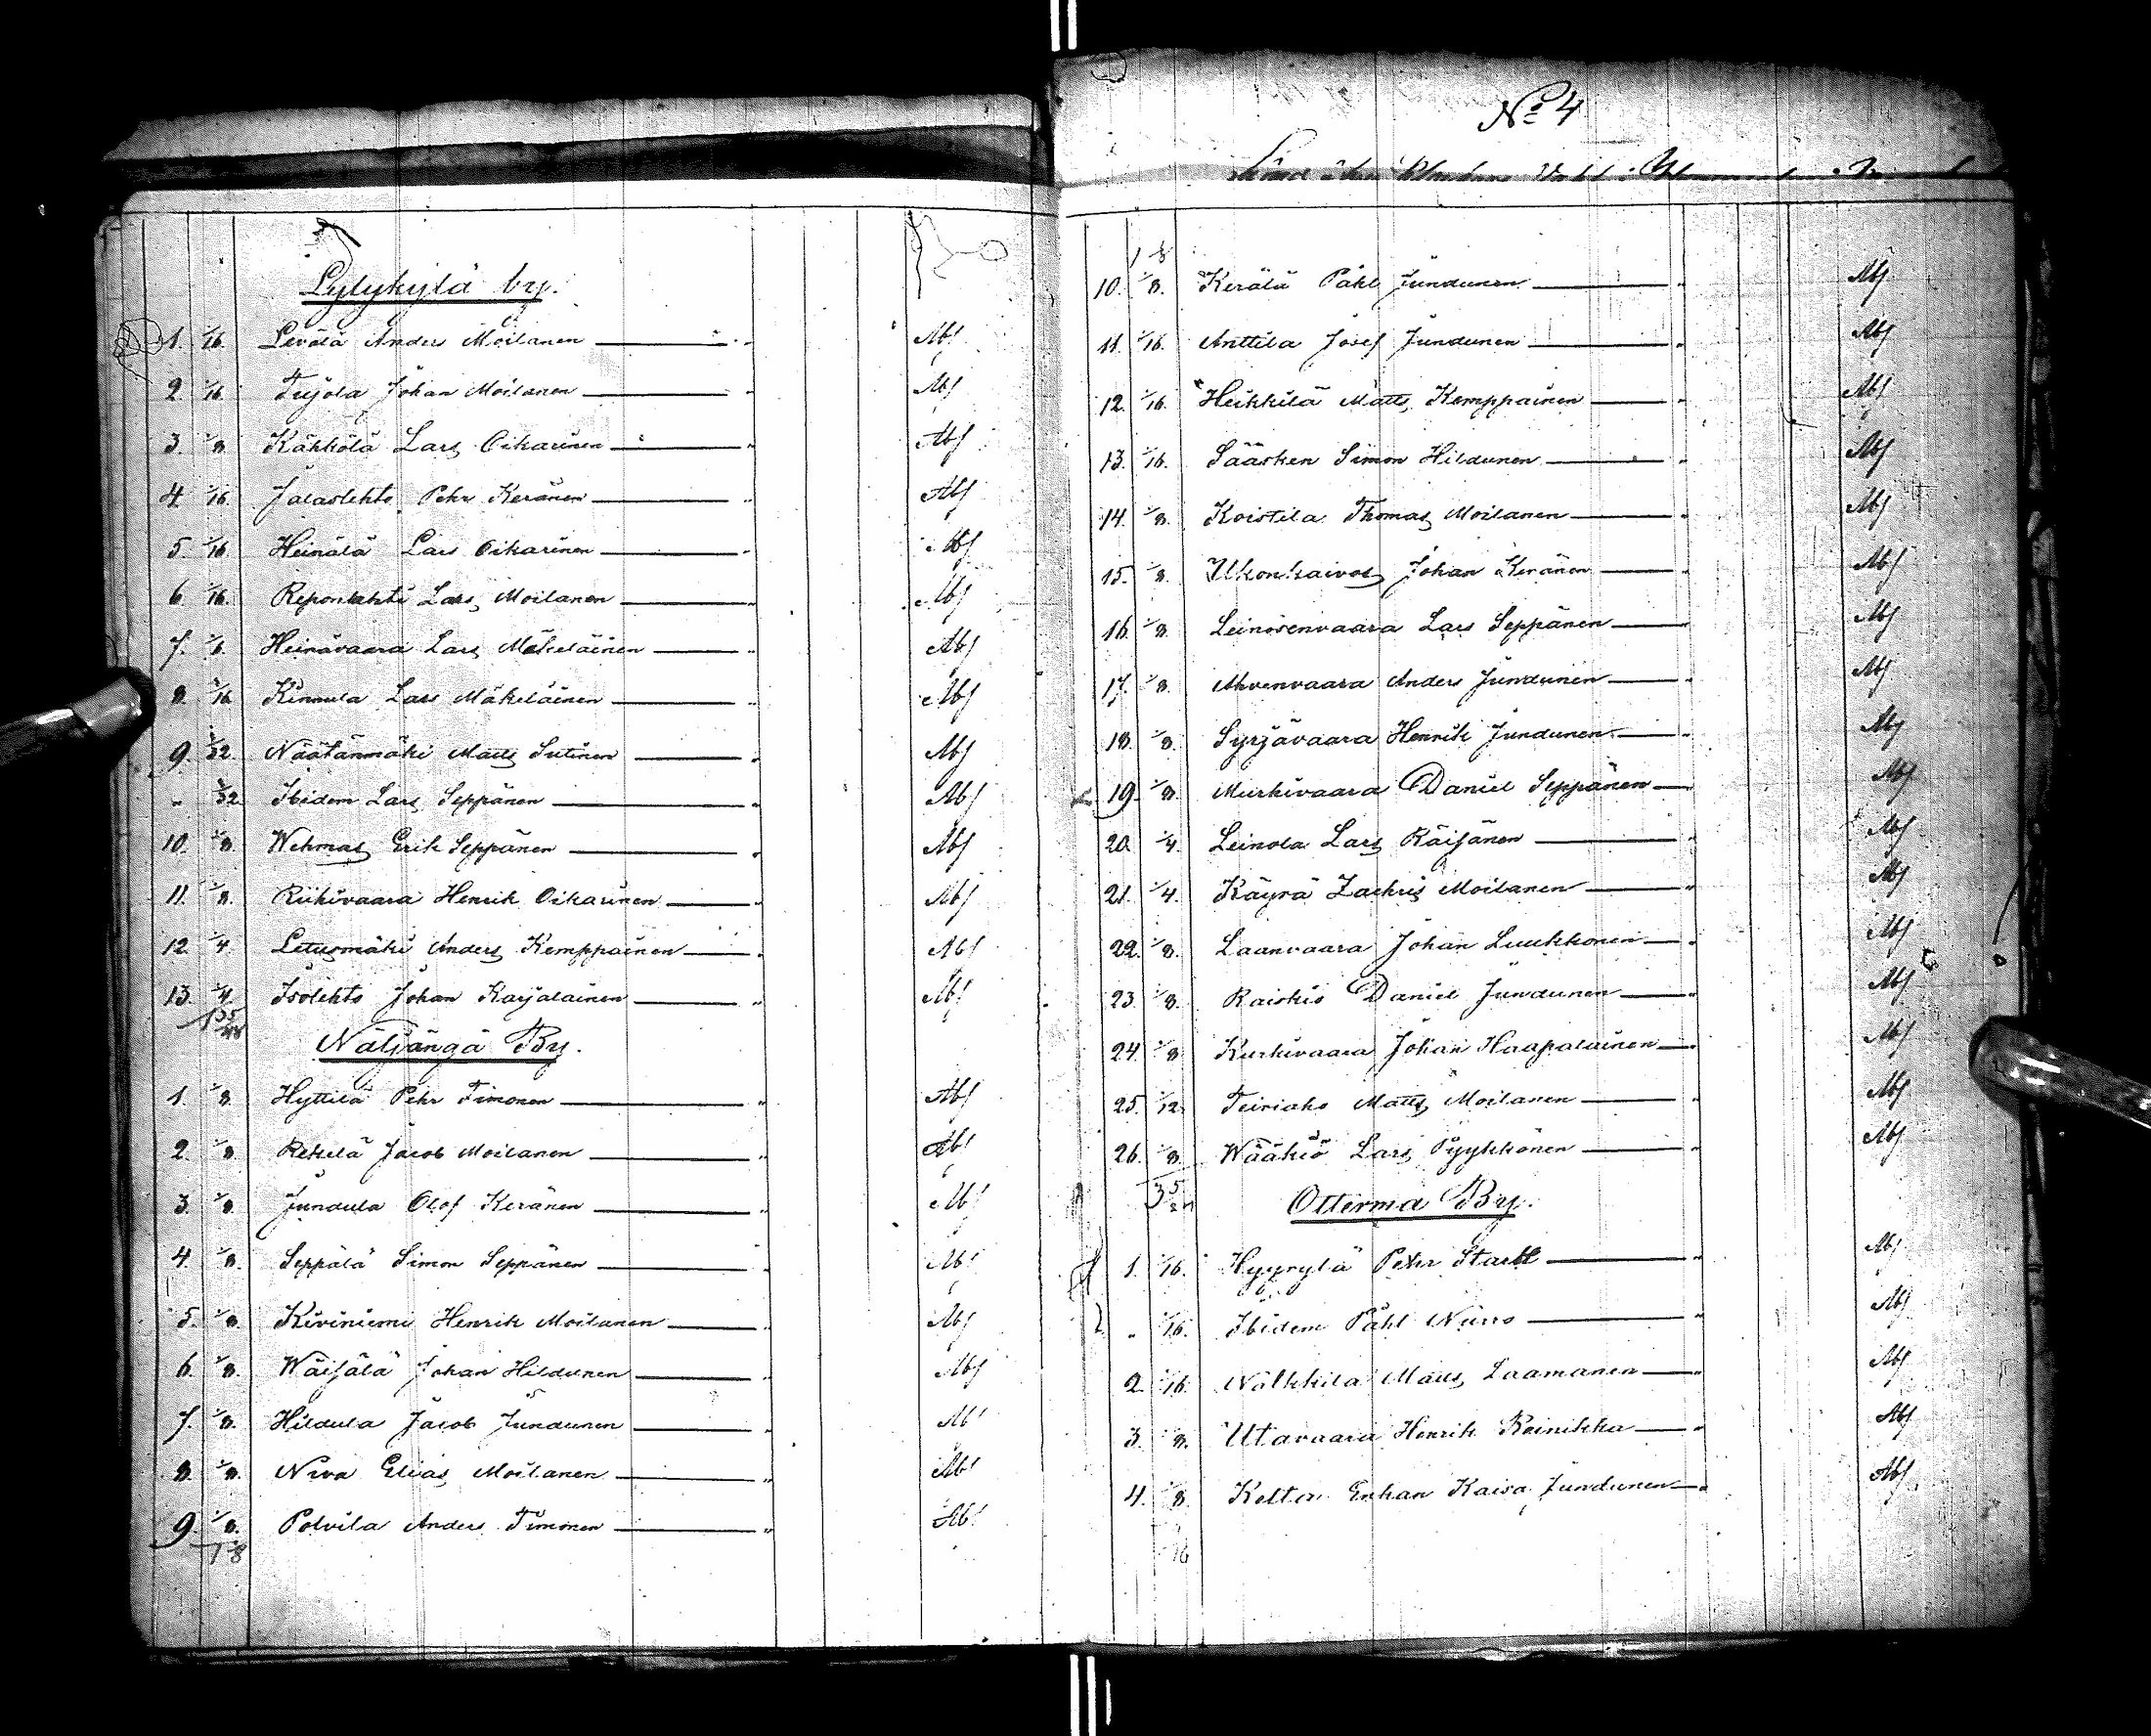 Lylykylä by.
1. 1/16. Levälä Anders Moilanen — " Abf
2 1/16. Teijola Johan Moilanen — " Abf
3. 1/8 Kähkölä Lars Oikarinen — " Abf
4 1/16. Jalaslehto Pehr Keränen — " Abf
5. 1/16 Heinälä Lars Oikarinen — " Abf
6. 1/16. Reponlahti Lars Moilanen — " Abf
7. 1/6. Heinävaara Lars Mäkeläinen — " Abf
8. 1/16 Kinnula Lars Mäkeläinen — " Abf
9. /32. Näätänmäki Matts Sutinen — " Abf
" /32 Ibidem Lars Seppänen — " Abf
10. 1/8. Wehmas Erik Seppänen — " Abf
11. 1/8. Riihivaara Henrik Oikarinen — " Abf
12 1/4. Letusmäki Anders Kemppainen — " Abf
13. 1/4. Isolehto Johan Karjalainen — " Abf
Näljängä By.
1. 1/8. Hyttilä Pehr Timonen — " Abf
2. 1/8 Rekelä Jacob Moilanen — " Abf
3. 1/8. Jundula Olof Keränen — " Abf
4 1/8. Seppälä Simon Seppänen — " Abf
5. 1/8. Kiviniemi Henrik Moilanen — " Abf
6. 1/8. Wäisälä Johan Hildunen — " Abf
7. 1/8. Hildula Jacob Jundunen — " Abf
8. 1/8. Niva Elias Moilanen — " Abf
9. 1/8. Polvila Anders Timonen — " Abf
1 1/8
No 4
1 1/8
10. 1/8. Kerälä Påhl Jundunen — " Abf
11. 1/16. Anttila Josef Jundunen — " Abf
12. 1/16. Heikkilä Matts Kemppainen — " Abf
13. 1/16. Sääsken Simon Hildunen — " Abf
14. 1/8. Koistila Thomas Moilanen — " Abf
15. 1/8. Ukonkaivos Johan Keränen — " Abf
16. 1/8. Leinosenvaara Lars Seppänen — " Abf
17. 1/8. Ahvenvaara Anders Jundunen — " Abf
18. 1/8. Syrjävaara Henrik Jundunen — " Abf
19. 1/8. Murhivaara Daniel Seppänen — Abf
20. 1/4. Leinola Lars Räisänen — " Abf
21. 1/4. Käyrä Zachris Moilanen — " Abf
22. 1/8. Laanvaara Johan Luukkonen — " Abf
23. 1/8. Raiskio Daniel Jundunen — " Abf
24. 1/8 Kurkivaara Johan Haapalainen — " Abf
25. 1/12 Teiriaho Matts Moilanen — " Abf
26. 1/8. Wääkiö Lars Pyykkönen — " Abf
3 5/24
Otterma By.
1. 1/16. Hyyrylä Pehr Stark — " Abf
" 1/16. Ibidem Påhl Nurro — " Abf
2. 1/16. Nälkkilä Matts Laamanen — " Abf
3. 1/8. Utavaara Henrik Reinikka — " Abf
4. 1/8. Kelto Enkan Kaisa Jundunen — " Abf